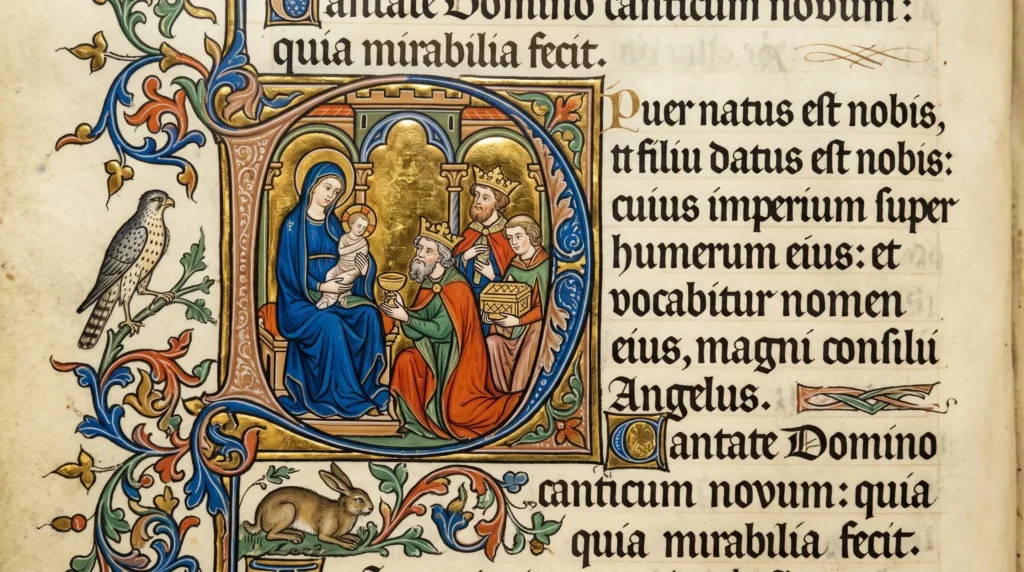 Cantate Domino canticum novum:
quia mirabilia fecit.
Puer natus est nobis,
tt filiu datus est nobis:
cuius imperium super
humerum eius: et
vocabitur nomen
eius, magni consilii
Angelus.
Cantate Domino
canticum novum: quia
quia mirabilia fecit.